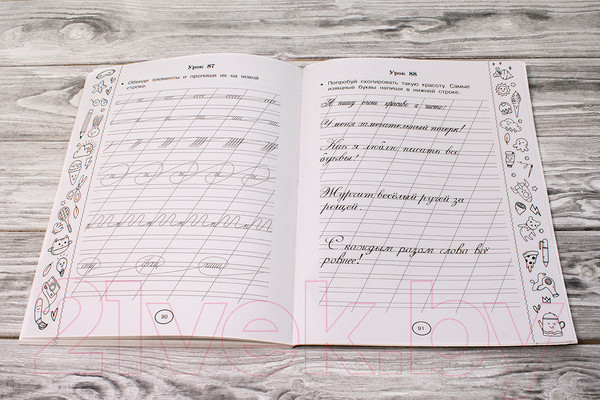 Урок 87
• Обведи элементы и пропиши их на новой
строке.
90
Урок 88
• Попробуй скопировать такую красоту. Самые
изящные буквы напиши в нижней строке.
Я пишу очень красиво и чисто.
У меня замечательный почерк!
Как я люблю писать все
буквы!
Журчит весёлый ручей за
рощей.
С каждым разом слова всё
ровнее!
91
21vek.by